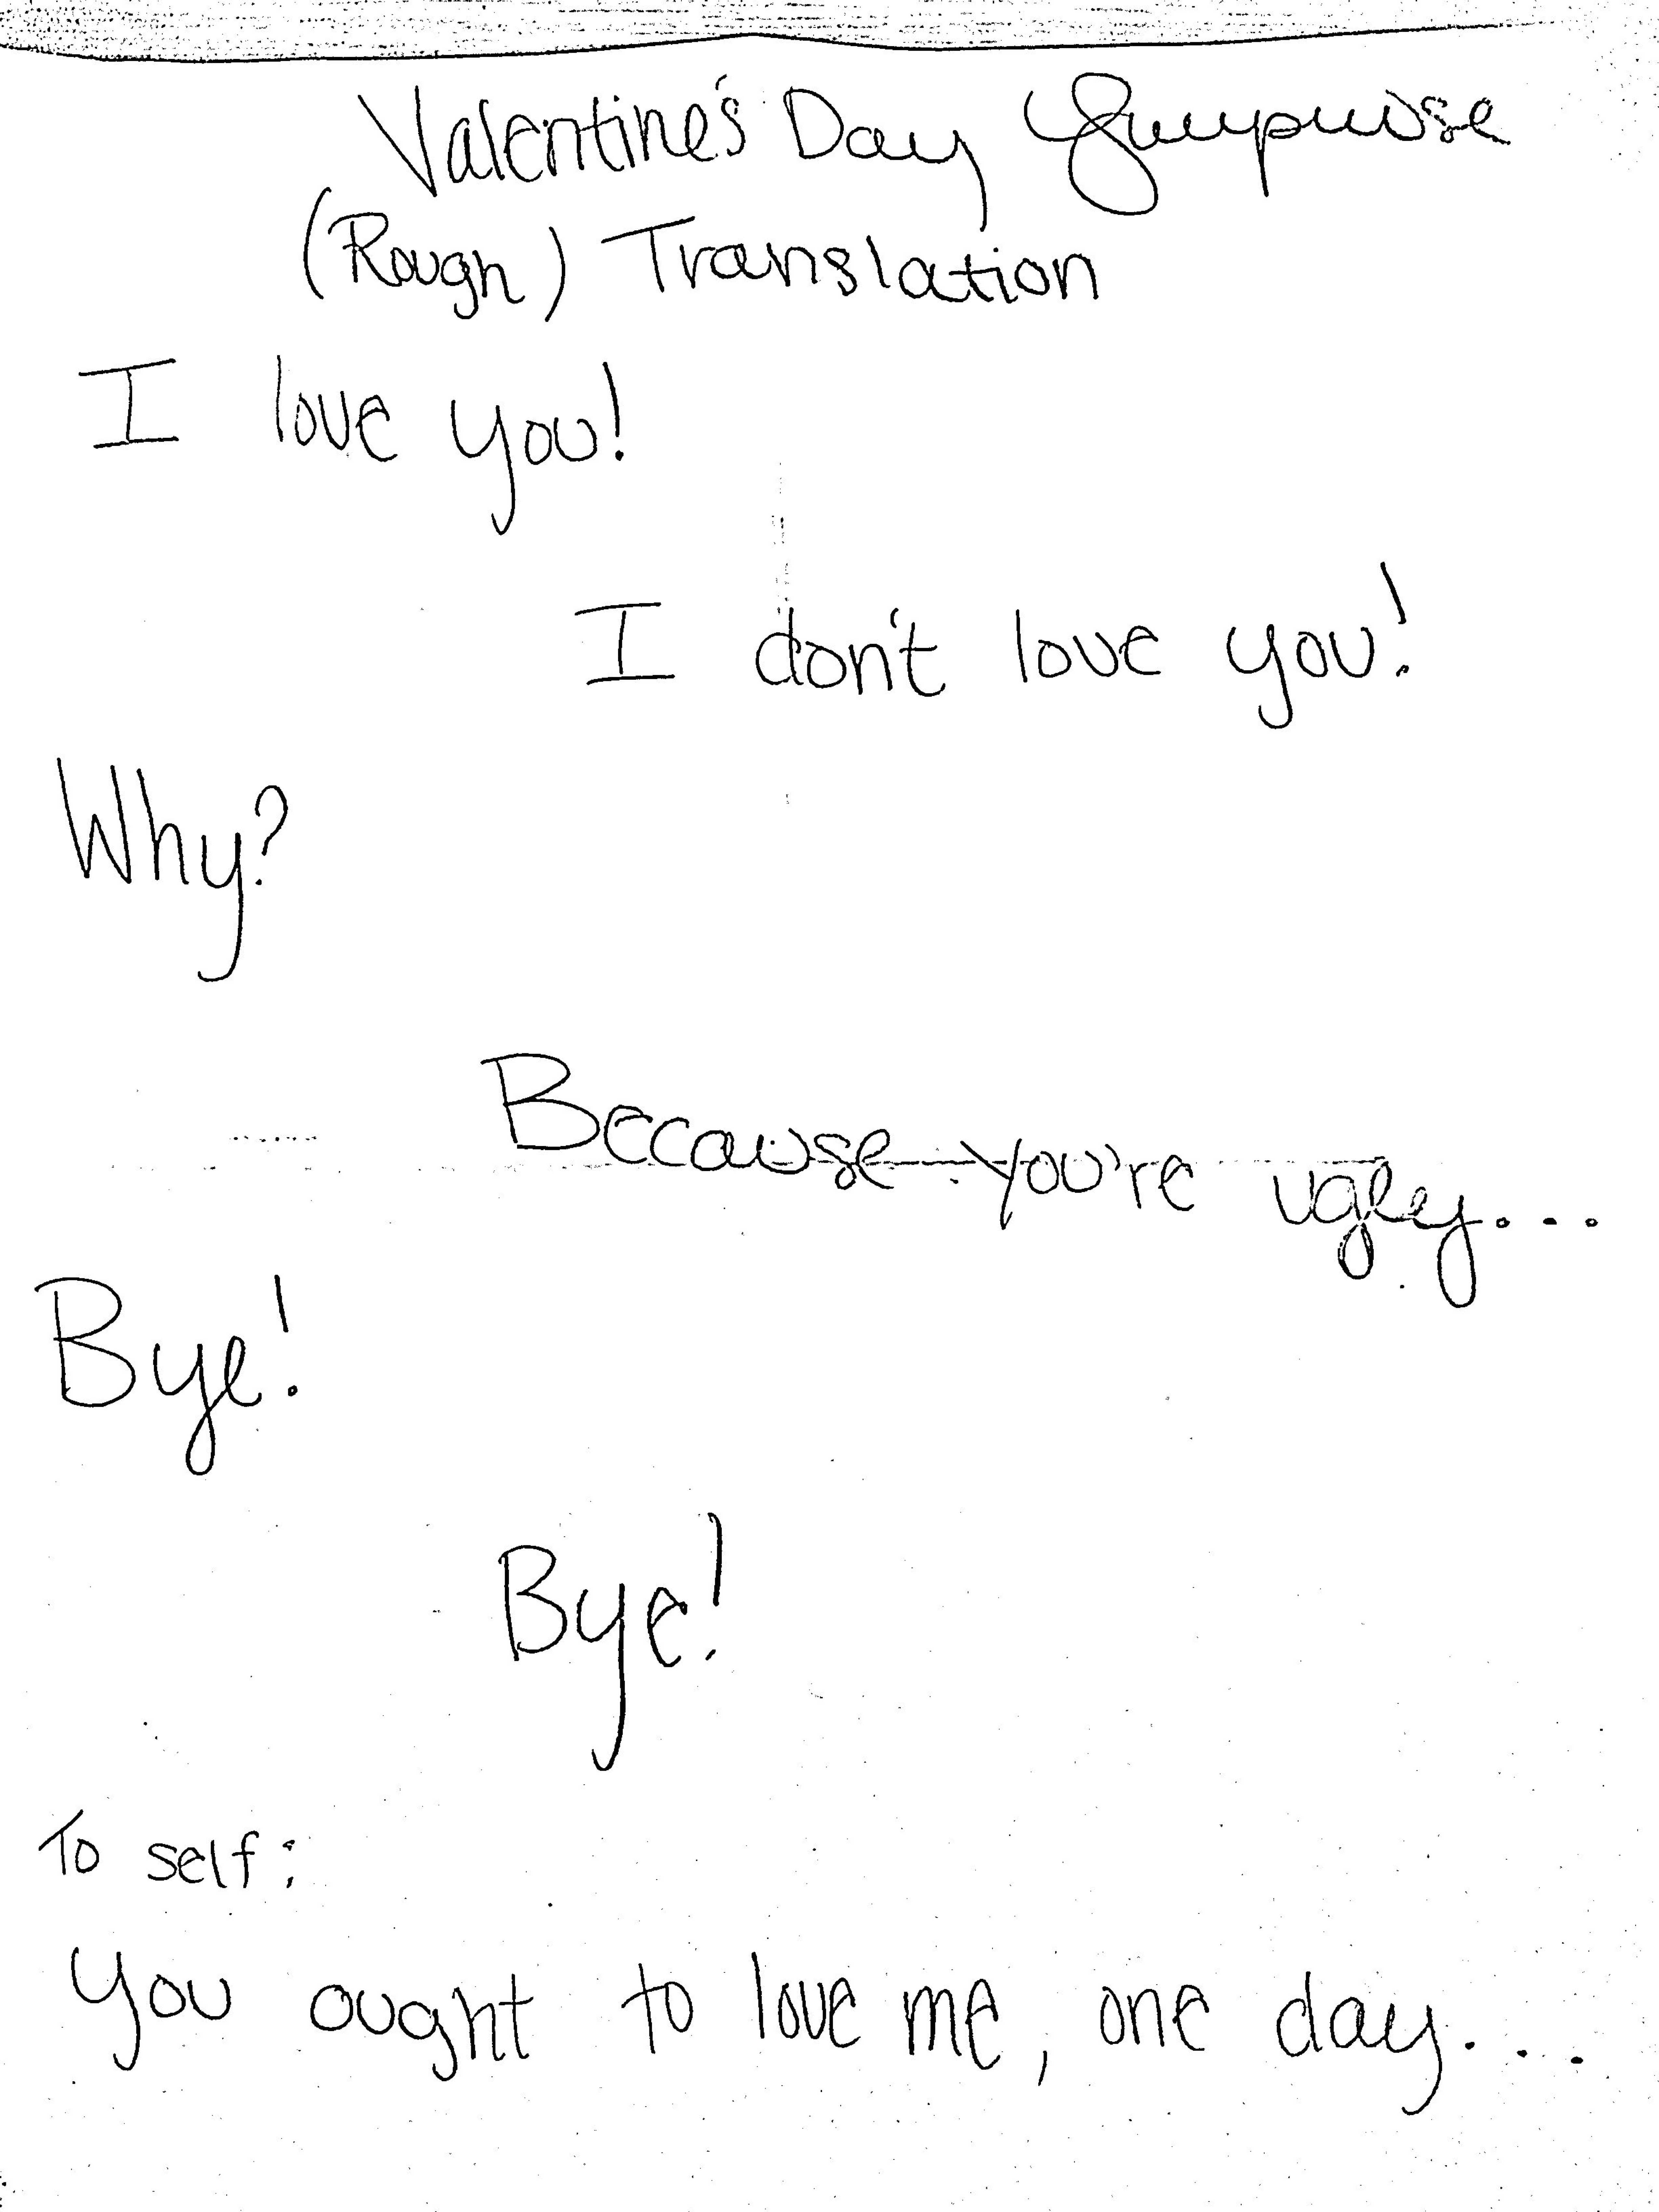 Valentine's Day
(Rough) Translation
I love you!
I don't love you!
Why?
Because you're ugly...
Bye!
Bye!
To self:
You ought to love me, one day...